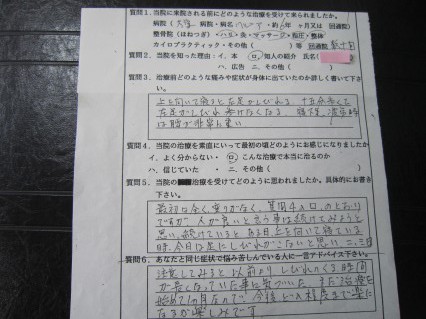 質問1. 当院に来院される前にどのような治療を受けて来られましたか。
病院(大塚 病院・病名・ヘルニア)・約 年 ヶ月又は 回通院
整骨院(ほねつぎ)・ハリ・灸・マッサージ・指圧・整体
カイロプラクティック・その他( )等 回通院 数十回
質問2. 当院を知った理由:イ. 本 ロ. 知人の紹介 氏名(
ハ. 広告 ニ. その他( )
質問3. 治療前どのような痛みや症状が身体に出ていたのか詳しく書いて下さい。
上を向いて寝ると左足がしびれる。十五分歩くと
左足がしびれ歩けなくなる。
は腰が非常に重い
質問4. 当院の治療を素直にいって最初の頃どのようにお感じになりましたか
イ. よく分からない・ ロ. こんな治療で本当に治るのか
ハ. 信じていた ・ ニ. その他(
質問5. 当院の 治療を受けてどのように思われましたか。具体的にお書き下さい。
最初は全く変りがなく、質問4のロ.のとおり
ですが、人が良いと言う事は続けてみようと
思い、続けていると ある日上を向いて寝ている
時、今日は足にしびれがこないと思い 二、三日
質問6. あなたと同じ症状で悩み苦しんでいる人に一言アドバイス下さい。
注意してみると以前より しびれのくる時間
が長くなっていた事に気づいた。まだ治療を
始めて1ヶ月なので、今後どの程度まで楽に
なるか楽しみです